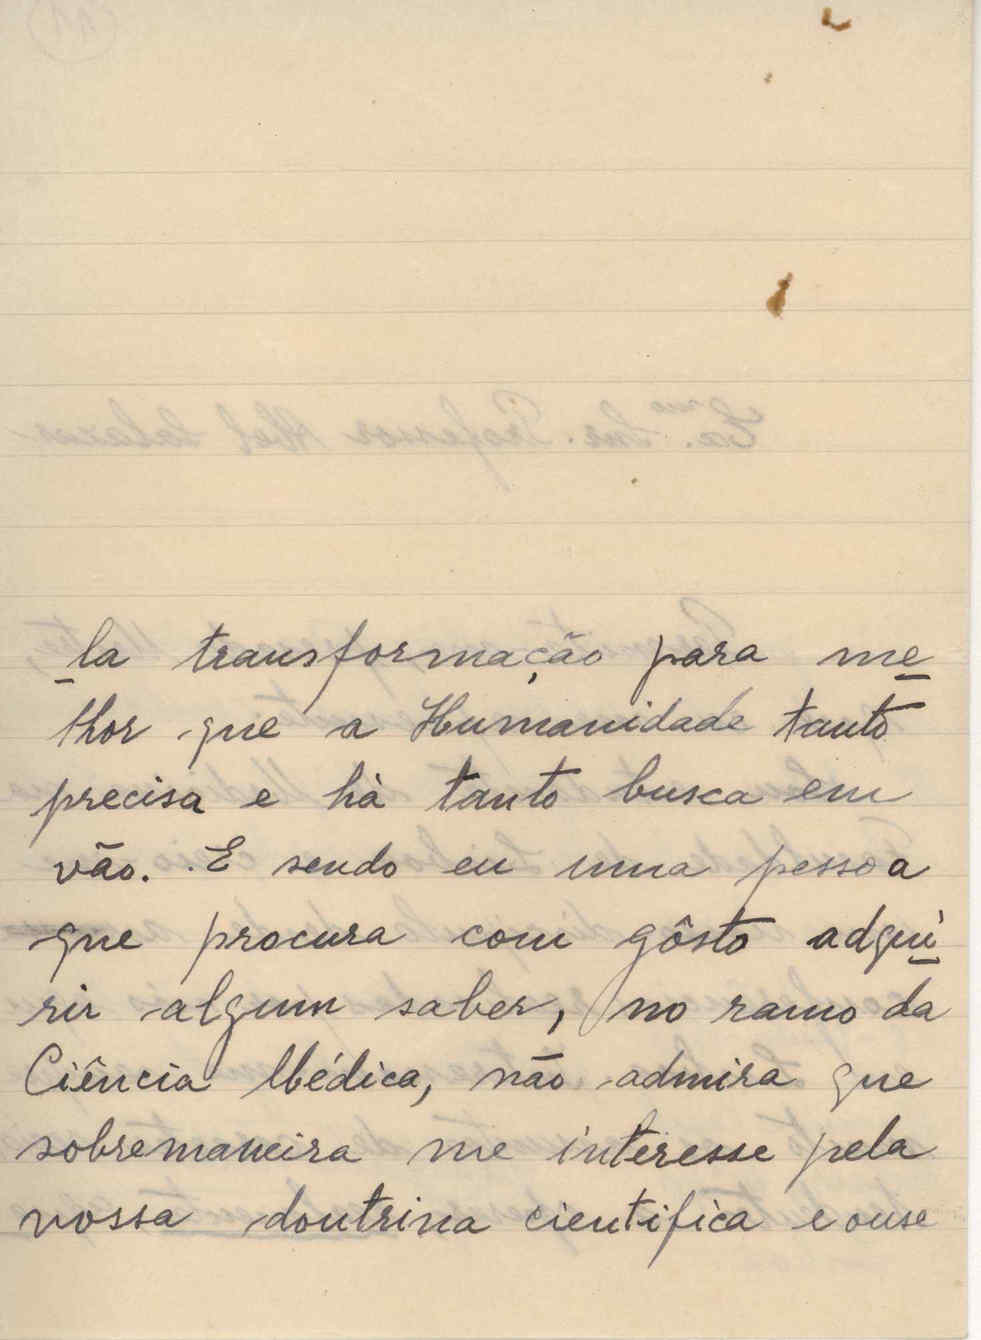 la transformação para me
lhor que a Humanidade tanto
precisa e hà tanto busca em
vão. E sendo eu uma pessoa
que procura com gôsto adqui
rir algum saber, no ramo da
Ciência Médica, não admira que
sobremaneira me interesse pela
vossa doutrina cientifica e ouse